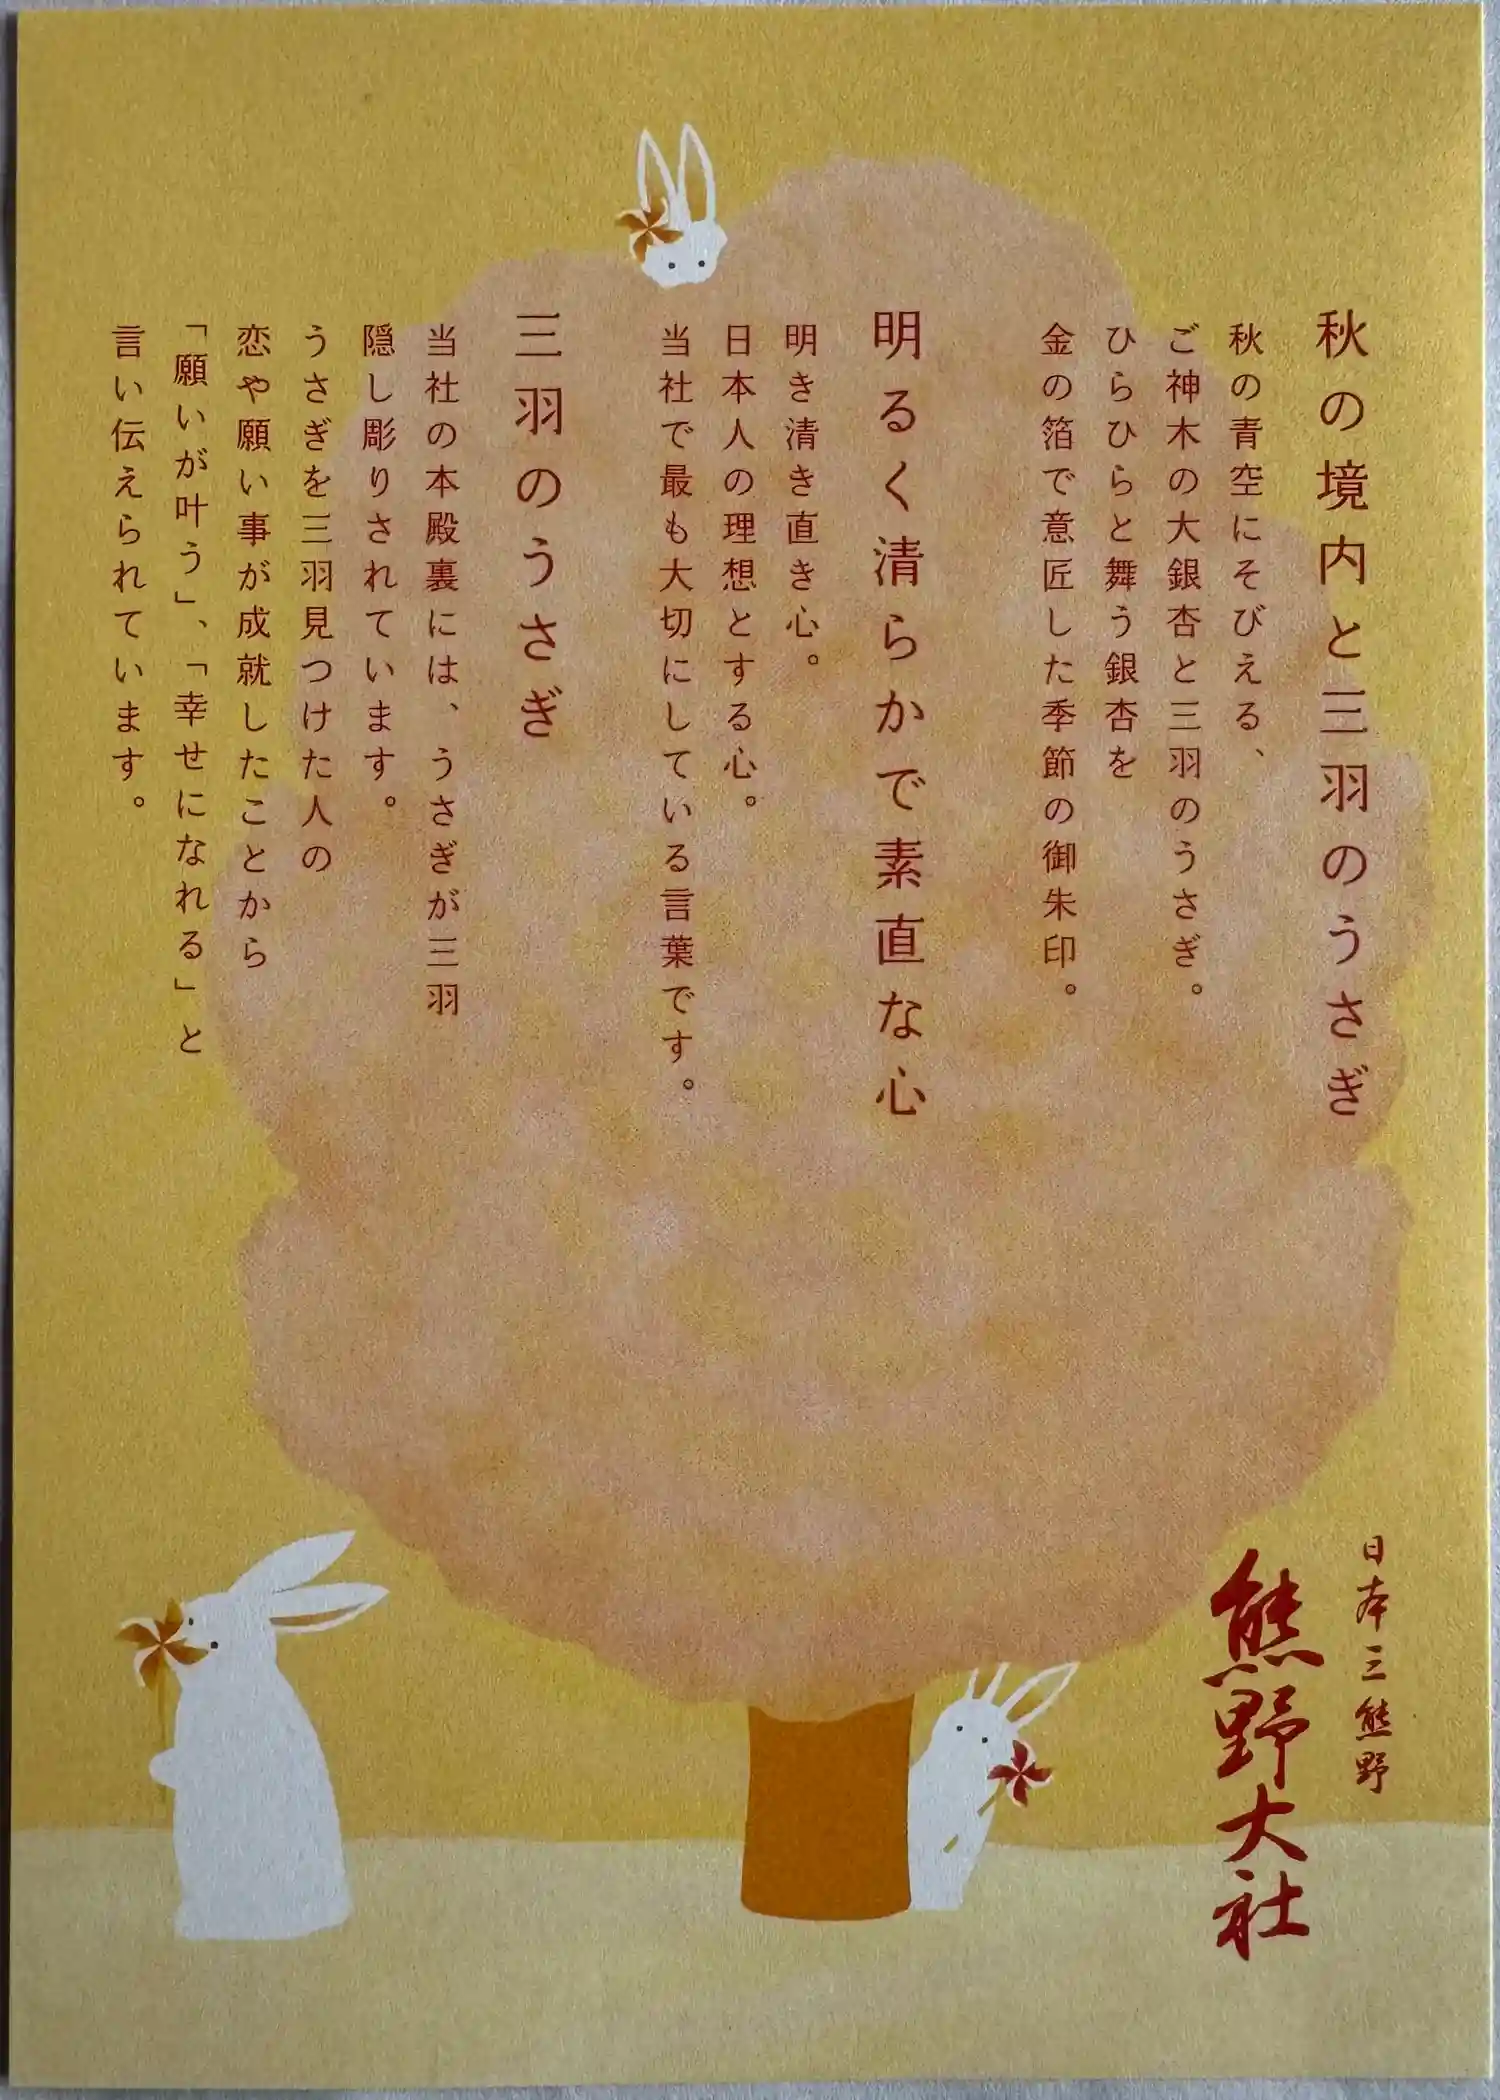 秋の境内と三羽のうさぎ
秋の青空にそびえる、
ご神木の大銀杏と三羽のうさぎ。
ひらひらと舞う銀杏を
金の箔で意匠した季節の御朱印。
明るく清らかで素直な心
明き清き直き心。
日本人の理想とする心。
当社で最も大切にしている言葉です。
三羽のうさぎ
当社の本殿裏には、うさぎが三羽
隠し彫りされています。
うさぎを三羽見つけた人の
恋や願い事が成就したことから
「願いが叶う」、「幸せになれる」と
言い伝えられています。
日本三熊野
熊野大社